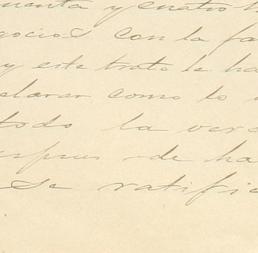 uenta y cuatro
gocios con la fa
y este trato le ha
clarar como lo
todo la ver
espues de ha
se ratific